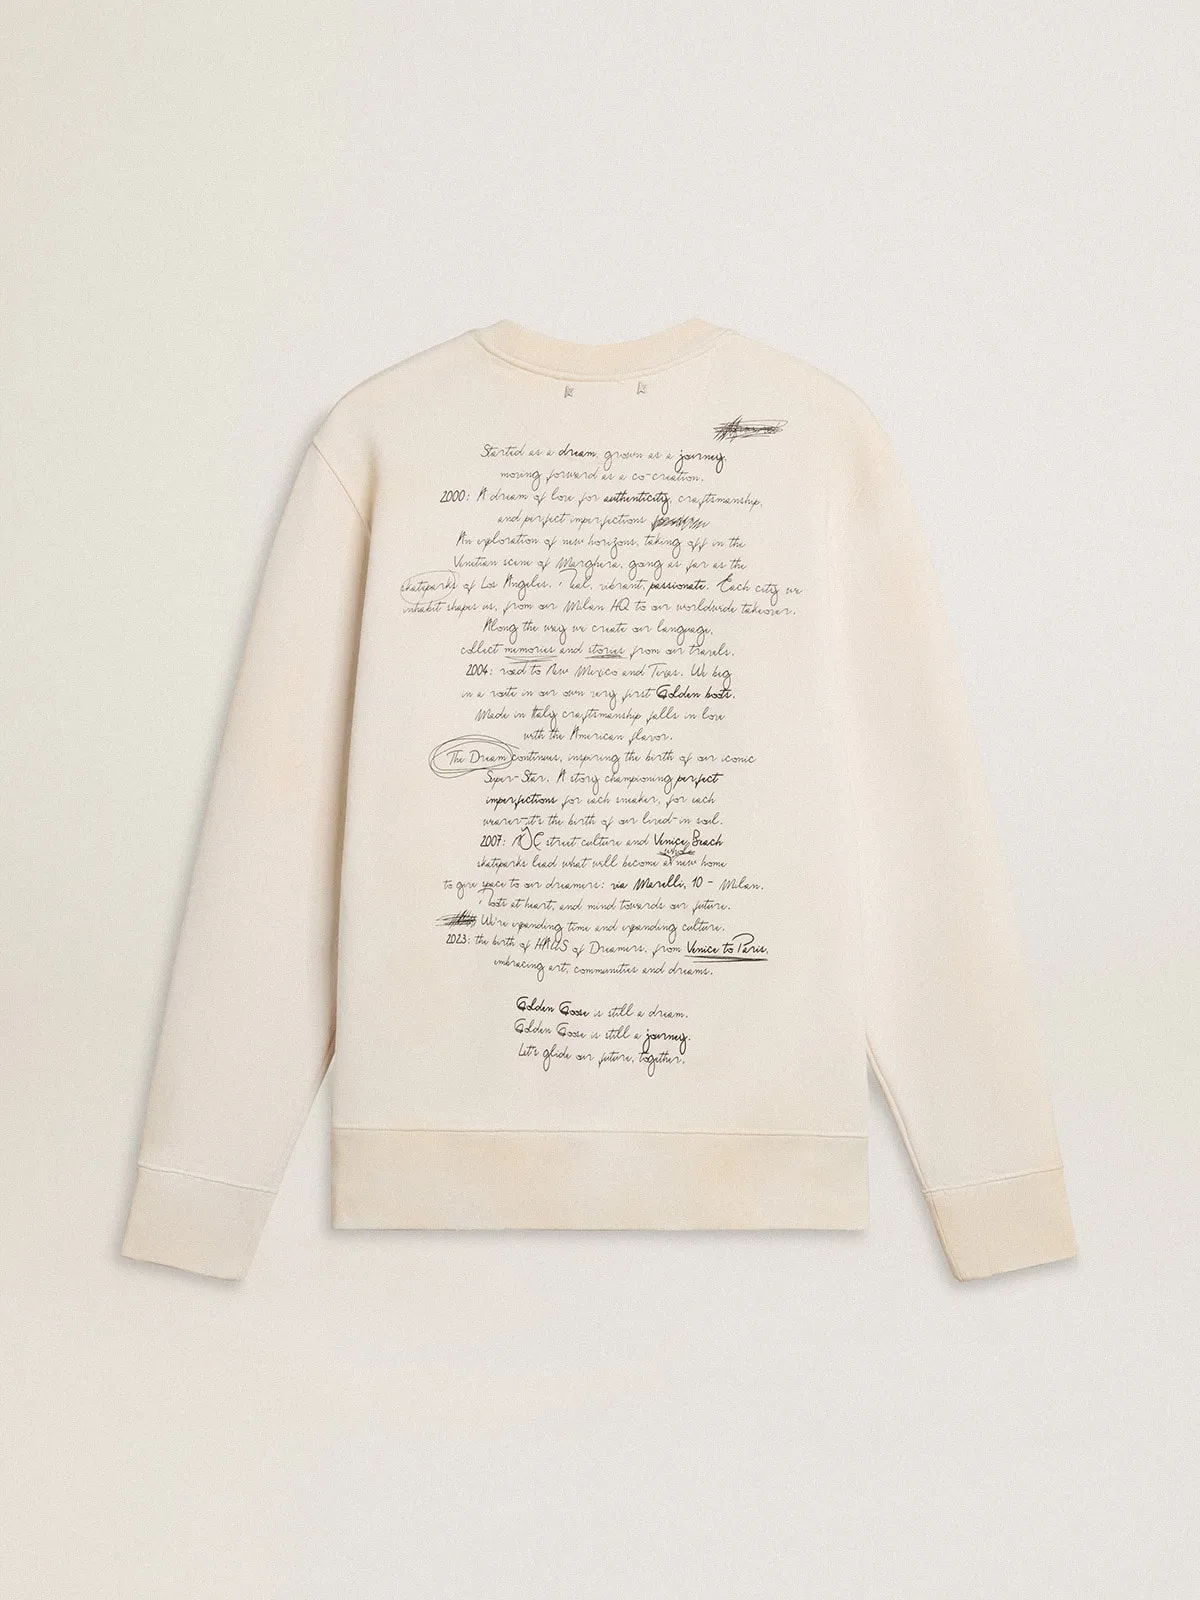 Started as a dream, grown as a journey,
moving forward as a co-creation.
2000: A dream of love for authenticity, craftsmanship,
and perfect imperfections
An exploration of new horizons, taking off in the
Venetian scene of Marghera, going as far as the
skateparks of Los Angeles. Real, vibrant, passionate. Each city we
inhabit shapes us, from our Milan HQ to our worldwide takeover.
Along the way we create our language,
collect memories and stories from our travels.
2004: road to New Mexico and Texas. We beg
in a route in our own very first Golden boots.
Made in Italy craftsmanship falls in love
with the American flavor.
The Dream continues, inspiring the birth of our iconic
Super-Star. A story championing perfect
imperfections for each sneaker, for each
wearer-it's the birth of our lived-in soul.
2007: NYC street culture and Venice Beach
skateparks lead what will become a whole new home
to give space to our dreamers: via Morelli, 10 - Milan.
Roots at heart, and mind towards our future.
We're expanding time and expanding culture.
2023: the birth of HAUS of Dreamers, from Venice to Paris,
embracing art, communities and dreams.
Golden Goose is still a dream.
Golden Goose is still a journey.
Let's glide our future, together.